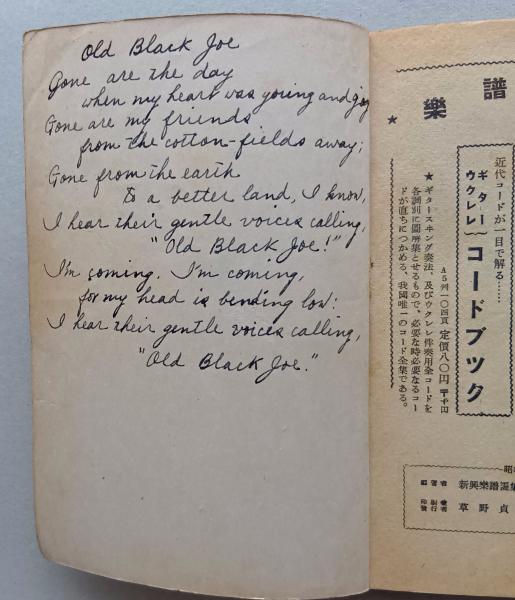 Old Black Joe
Gone are the day
when my heart was young and gay
Gone are my friends
from the cotton-fields away;
Gone from the earth
to a better land, I know,
I hear their gentle voices calling,
"Old Black Joe!"
I'm coming. I'm coming,
for my head is bending low:
I hear their gentle voices calling,
"Old Black Joe."
譜
樂
★
近代コードが一目で解る……
ギター
ウクレレ
コードブック
A5判一〇四頁 定價八〇円
★ギタースヰング奏法、及びウクレレ伴奏用全コードを
各調別に圖解集とせるもので、必要な時必要なるコー
ドが直ちにつかめる、我國唯一のコード全集である。
昭
編著者 新興樂譜
印刷兼
發行者 草野貞